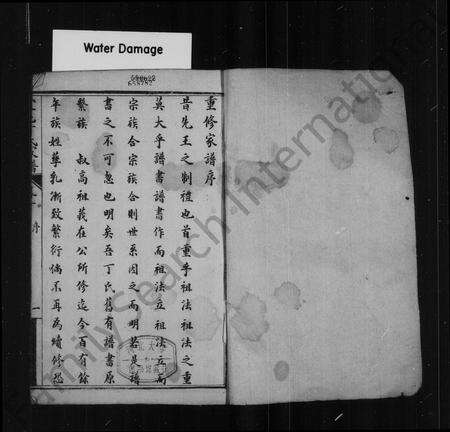 Water Damage
重修家譜序
昔先王之制禮也首重乎祖法祖法之重
莫大乎譜書譜書作而祖法立祖法立而
宗族合宗族合則世系因之而明若是譜
書之不可忽也明矣吾丁氏舊有譜書原
繫族 叔高祖莪在公所修迄今百有餘
年族姓孳乳漸致繁衍倘不再為續修恐
序
一
FamilySearch International